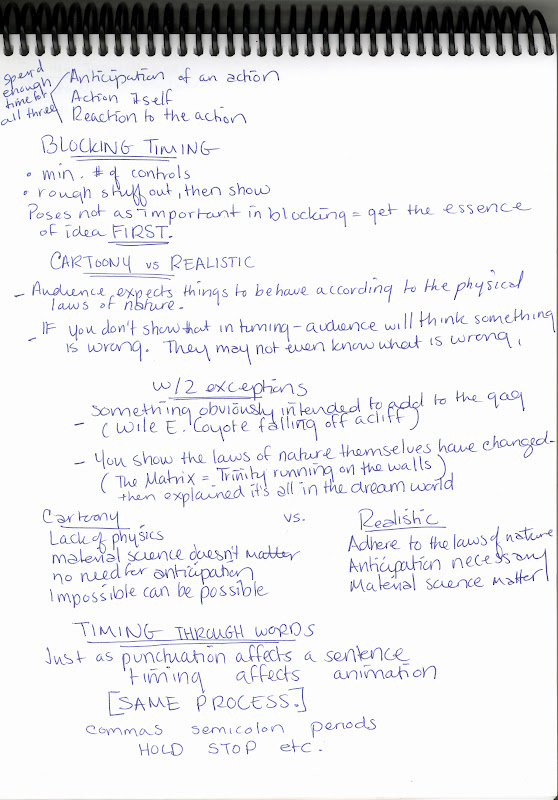 spend
enough
time for
all three
Anticipation of an action
Action itself
Reaction to the action
BLOCKING TIMING
• min. # of controls
• rough stuff out, then show
Poses not as important in blocking = get the essence
of idea FIRST.
CARTOONY vs REALISTIC
- Audience expects things to behave according to the physical
laws of nature.
- IF you don't show that in timing - audience will think something
is wrong. They may not even know what is wrong.
w/2 exceptions
- something obviously intended to add to the gag
(Wile E. Coyote falling off a cliff)
- You show the laws of nature themselves have changed-
(The Matrix = Trinity running on the walls)
then explained it's all in the dream world
Cartoony vs. Realistic
Lack of physics
material science doesn't matter
no need for anticipation
Impossible can be possible
Adhere to the laws of nature
Anticipation necessary
Material science matter
TIMING THROUGH WORDS
Just as punctuation affects a sentence
timing affects animation
[SAME PROCESS.]
commas semicolon periods
HOLD STOP etc.